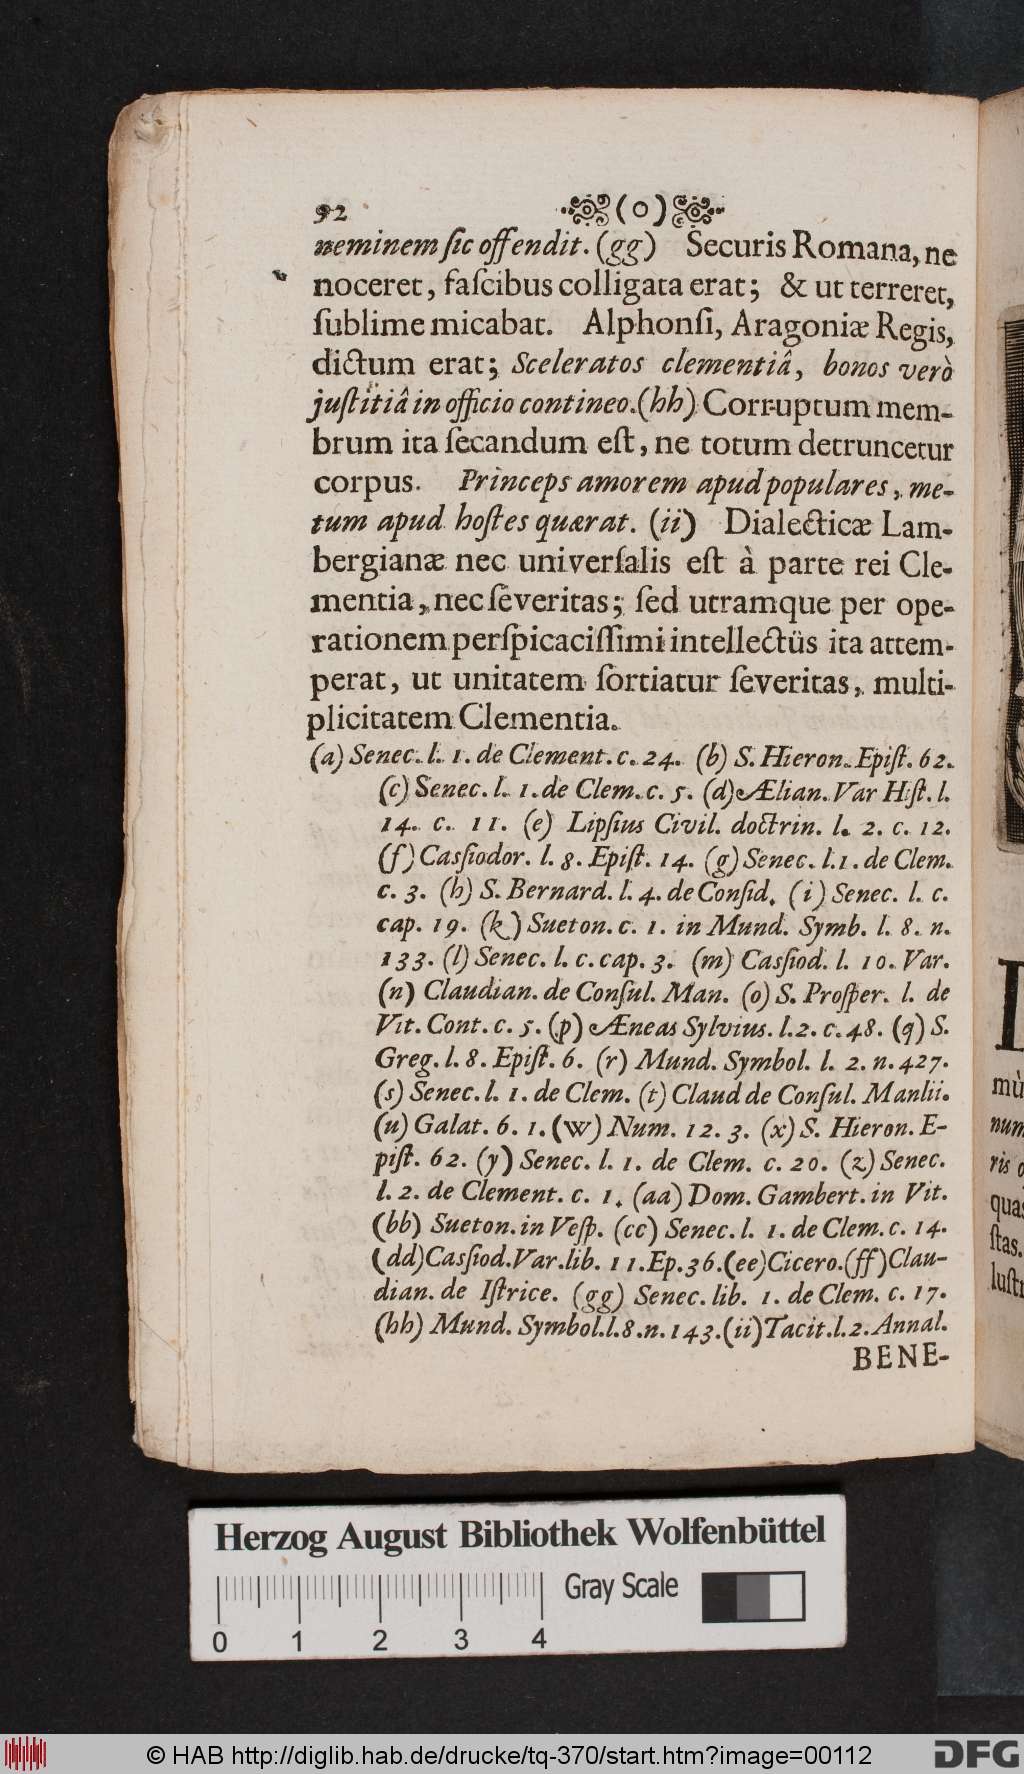 92 (o)
neminem ſic offendit. (gg) Securis Romana, ne
noceret, faſcibus colligata erat; & ut terreret,
ſublime micabat. Alphonſi, Aragoniæ Regis,
dictum erat; Sceleratos clementiâ, bonos verò
juſtitiâ in officio contineo. (hh) Corruptum mem-
brum ita ſecandum eſt, ne totum detruncetur
corpus. Princeps amorem apud populares, me-
tum apud hoſtes quærat. (ii) Dialecticæ Lam-
bergianæ nec univerſalis eſt à parte rei Cle-
mentia, nec ſeveritas; ſed utramque per ope-
rationem perſpicaciſſimi intellectüs ita attem-
perat, ut unitatem ſortiatur ſeveritas, multi-
plicitatem Clementia.
(a) Senec. l. 1. de Clement. c. 24. (b) S. Hieron. Epiſt. 62.
(c) Senec. l. 1. de Clem. c. 5. (d) Ælian. Var Hiſt. l.
14. c. 11. (e) Lipſius Civil. doctrin. l. 2. c. 12.
(f) Caſſiodor. l. 8. Epiſt. 14. (g) Senec. l. 1. de Clem.
c. 3. (h) S. Bernard. l. 4. de Conſid. (i) Senec. l. c.
cap. 19. (k) Sueton. c. 1. in Mund. Symb. l. 8. n.
133. (l) Senec. l. c. cap. 3. (m) Caſſiod. l. 10. Var.
(n) Claudian. de Conſul. Man. (o) S. Proſper. l. de
Vit. Cont. c. 5. (p) Æneas Sylvius. l. 2. c. 48. (q) S.
Greg. l. 8. Epiſt. 6. (r) Mund. Symbol. l. 2. n. 427.
(s) Senec. l. 1. de Clem. (t) Claud de Conſul. Manlii.
(u) Galat. 6. 1. (w) Num. 12. 3. (x) S. Hieron. E-
piſt. 62. (y) Senec. l. 1. de Clem. c. 20. (z) Senec.
l. 2. de Clement. c. 1. (aa) Dom. Gambert. in Vit.
(bb) Sueton. in Veſp. (cc) Senec. l. 1. de Clem. c. 14.
(dd) Caſſiod. Var. lib. 11. Ep. 36. (ee) Cicero. (ff) Clau-
dian. de Iſtrice. (gg) Senec. lib. 1. de Clem. c. 17.
(hh) Mund. Symbol. l. 8. n. 143. (ii) Tacit. l. 2. Annal.
BENE-
mù
num
ris
quas
ſtas.
luſtr
Herzog August Bibliothek Wolfenbüttel
Gray Scale
0 1 2 3 4
© HAB http://diglib.hab.de/drucke/tq-370/start.htm?image=00112
DFG